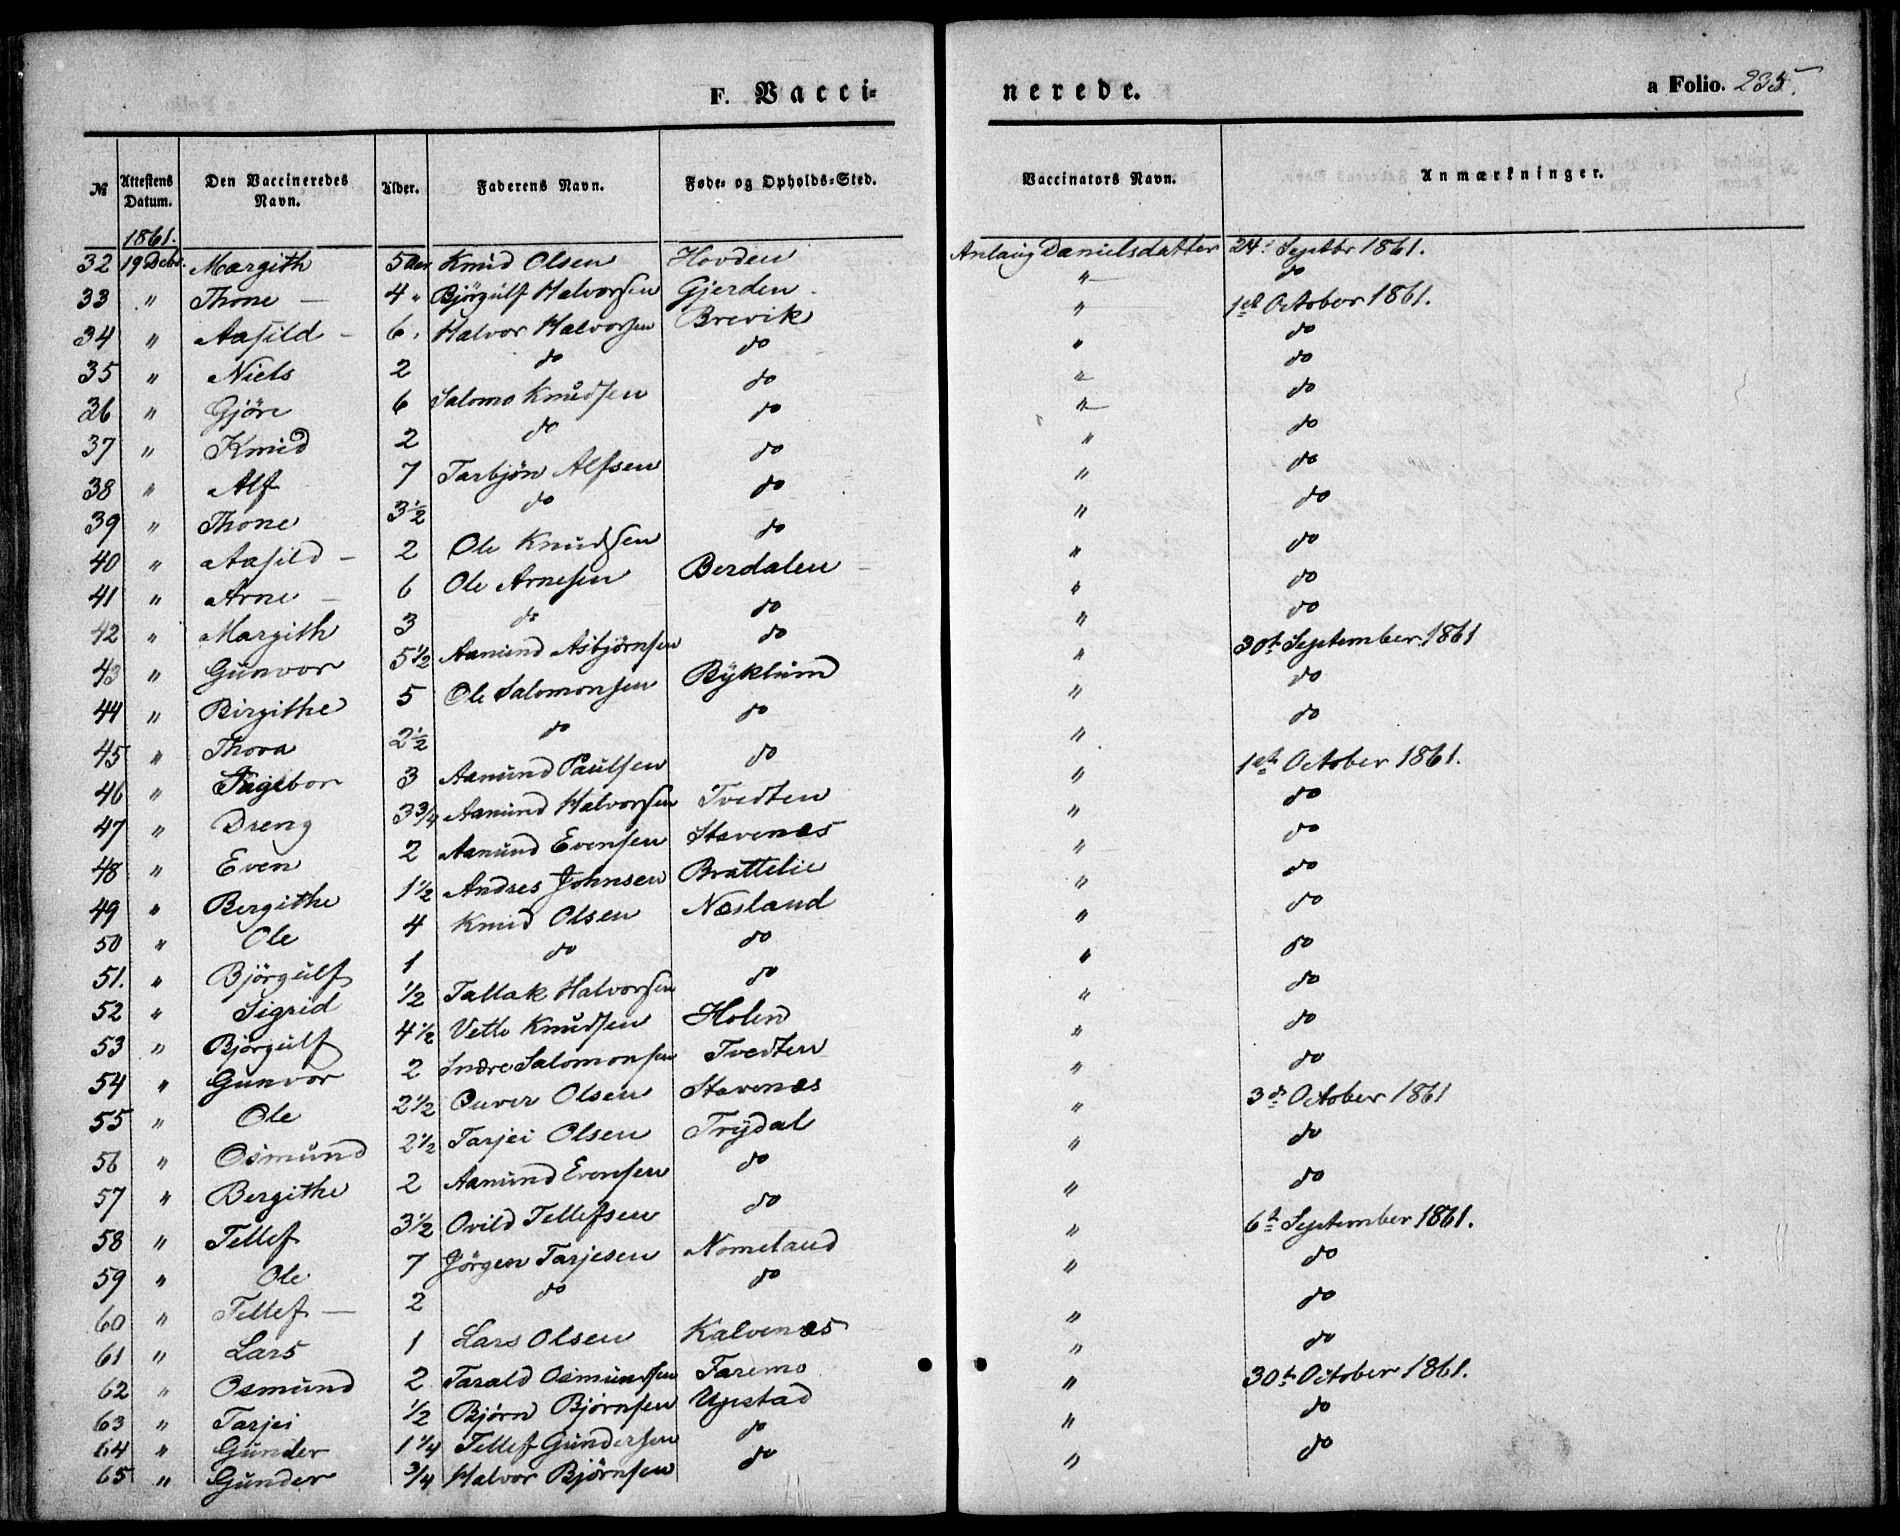 F. Vacci=
nerede.
a Folio. 235.
№ Attestens Datum. Den Vaccineredes Navn. Alder. Faderens Navn. Føde- og Opholds-Sted. Vaccinators Navn. Anmærkninger.
1861.
32 19 Debr. Margith 5 Aar Knud Olsen Hovden Anlaug Danielsdatter 24. Septbr 1861.
33 " Thone — 4 " Björgulf Halvorsen Gjerden " do
34 " Aasild — 6. Halvor Halvorsen Brevik " 1ste October 1861.
35 " Niels 2 do do " do
36 " Gjöre 6 Salomo Knudsen do " do
37 " Knud 2 do do " do
38 " Alf 7 Tarbjön Alfsen do " do
39 " Thone 3½ do do " do
40 " Aasild — 2 Ole Knudsen do " do
41 " Arne — 6 Ole Arnesen Berdalen " do
42 " Margith 3 do do " do
43 " Gunvor 5½ Aamund Asbjörnsen do " do
44 " Birgithe 5 Ole Salomonsen Byklum " 30t September 1861
45 " Thora 2½ do do " do
46 " Ingebor 3 Aamund Paulsen do " do
47 " Dreng 3¾ Aamund Halvorsen Tvedten " 1st October 1861.
48 " Even 2 Aamund Evensen Stavenæs " do
49 " Bergithe 1½ Andres Johnsen Brattelie " do
50 " Ole 4 Knud Olsen Næsland " do
51. " Björgulf 1 do do " do
52 " Sigrid ½ Tallak Halvorsen do " do
53 " Björgulf 4½ Vetle Knudsen Holen " do
54 " Gunvor 2 Indre Salomonsen Tvedten " do
55 " Ole 2½ Ouver Olsen Stavenæs " do
56 " Osmund 2½ Tarjei Olsen Trydal " 3d October 1861
57 " Bergithe 2 Aamund Evensen do " do
58 " Tellef 3½ Ovild Tellefsen do " do
59 " Ole 7 Jörgen Tarjesen Nomeland " 6t September 1861.
60 " Tellef — 2 do do " do
61 " Lars 1 Lars Olsen Kalvenæs " do
62 " Osmund 2 Tarald Osmundsen Faremo " do
63 " Tarjei ½ Bjørn Bjørnsen Ugestad " 30t October 1861.
64 " Gunder 1¼ Tellef Gundersen do " do
65 " Gunder ¾ Halvor Bjørnsen do " do